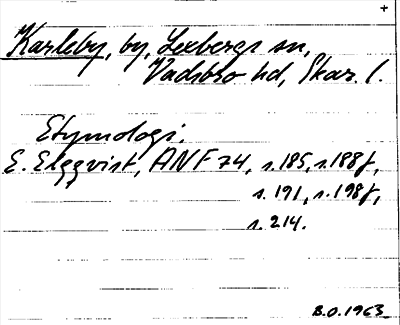 +
Karleby, by, Lexbergs sn,
Vadsbro hd, Skar. l.
Etymologi.
E. Elgqvist, ANF 74, s. 185, s. 188f,
s. 191, s. 198f,
s. 214.
B.O. 1963